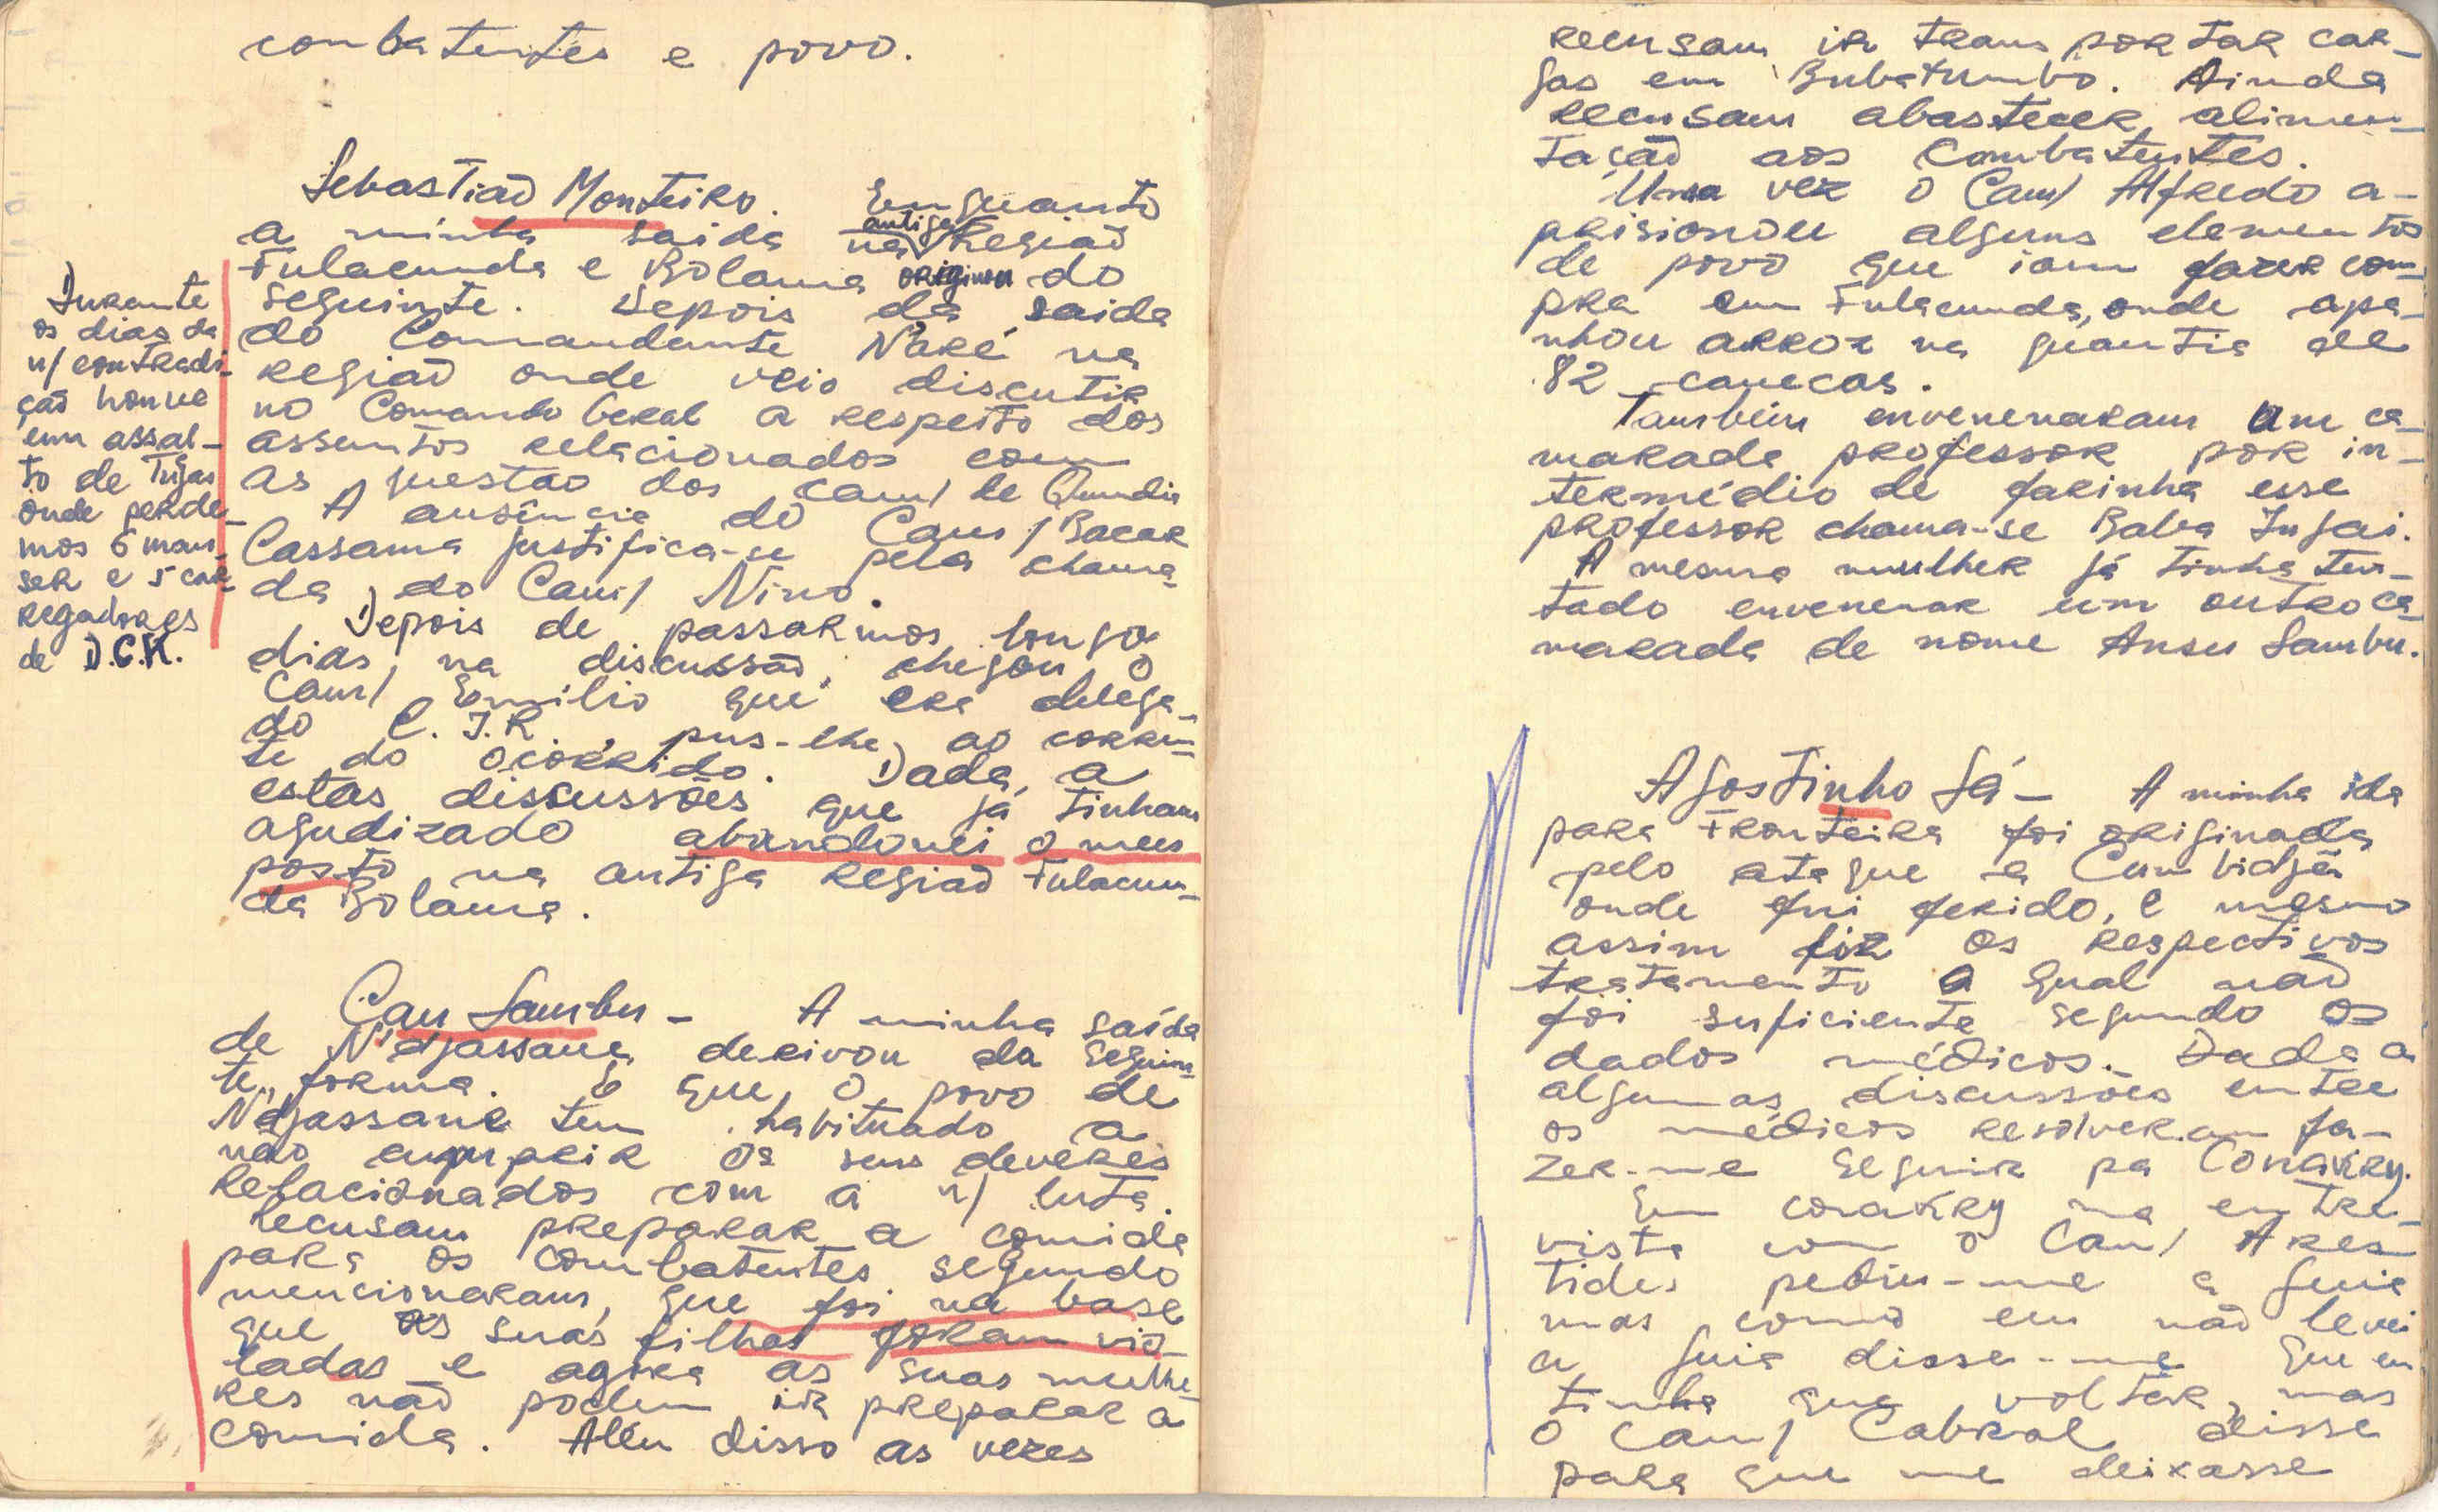 combatentes e povo.
Sebastião Monteiro. Enquanto
a minha saida na antiga Região
Fulacunda e Bolama originou do
seguinte. Depois da saida
do Comandante N'baré na
região onde veio discutir
no Comando Geral a respeito dos
assuntos relacionados com
as questão dos cam/ de Qundin
A ausência do Cam/ Bacar
Cassama justifica-se pela chama-
da do Cam/ Nino.
Depois de passarmos longo
dias, na discussão, chegou o
Cam/ Emilio que era delega-
do C.I.R., pus-lhe ao corren-
te do ocorrido. Dada, a
estas discussões que já tinham
agudizado abandonei o meu
posto na antiga Região Fulacun-
da Bolama.
Durante
os dias da
n/ contradi-
ção houve
um assal-
to de Tugas
onde perde-
mos 6 mau-
ser e 5 car-
regadores
de D.C.K.
Can Sambu - A minha saída
de N'djassane derivou da seguin-
te forma. É que o povo de
N'djassane tem habituado a
não cumprir os seus deveres
relacionados com a n/ luta.
Recusam preparar a comida
para os combatentes segundo
mencionaram, que foi na base
que as suas filhas foram vio-
ladas e agora as suas mulhe-
res não podem ir preparar a
comida. Além disso as vezes
recusam ir transportar car-
gas em Bubatumbo. Ainda
recusam abastecer alimen-
tação aos combatentes.
Uma vez o Cam/ Alfredo a-
prisionou alguns elementos
de povo que iam fazer com-
pra em Fulacunda, onde apa-
nhou arroz na quantia de
82 canecas.
Também envenenaram um ca-
marada professor por in-
termédio de farinha esse
professor chama-se Baba Injai.
A mesma mulher já tinha ten-
tado envenenar um outro ca-
marada de nome Ansu Sambu.
Agostinho Sá - A minha ida
para Fronteira foi originada
pelo ataque a Cumbidjã
onde fui ferido, e mesmo
assim fiz os respectivos
tratamento o qual não
foi suficiente segundo os
dados médicos. Dada a
algumas discussões entre
os médicos resolveram fa-
zer-me seguir pa Conakry.
Em conakry na entre-
vista com o Cam/ Ares-
tides pediu-me a guia
mas como eu não levei
a guia disse-me que eu
tinha que voltar, mas
o Cam/ Cabral disse
para que me deixasse